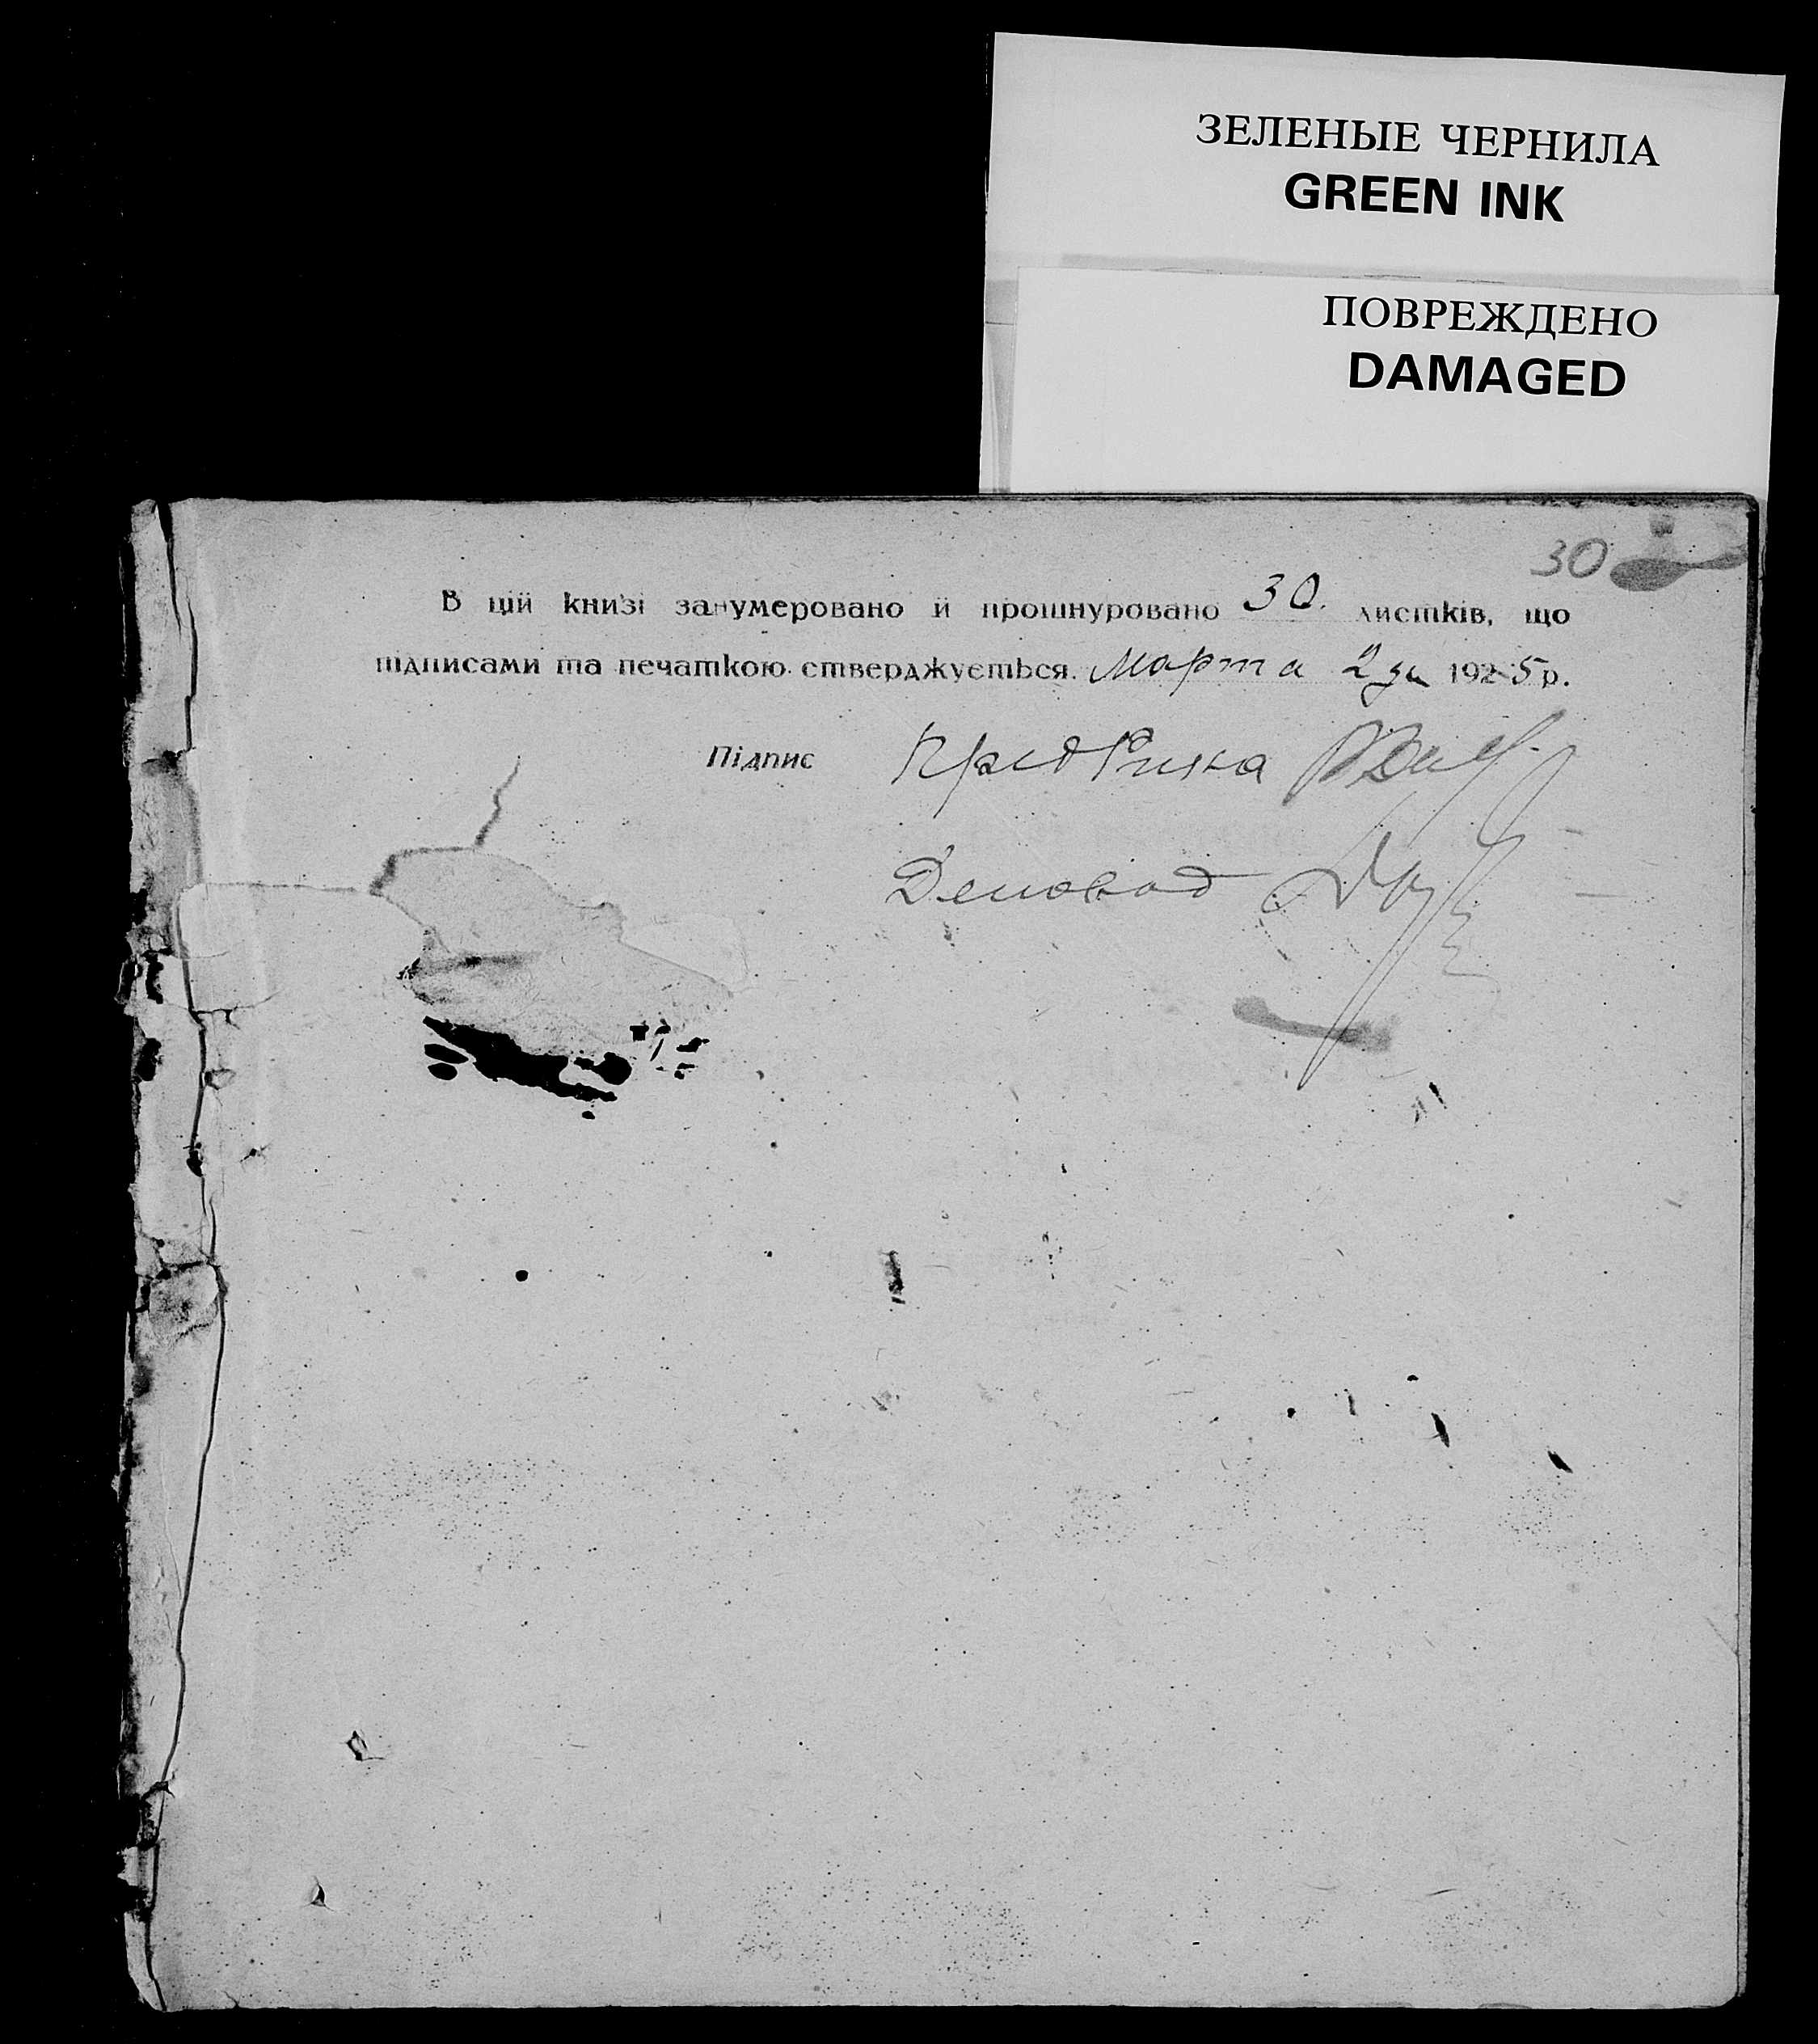 ЗЕЛЕНЫЕ ЧЕРНИЛА
GREEN INK
ПОВРЕЖДЕНО
DAMAGED
30
В цій книзі занумеровано й прошнуровано 30. листків, що
підписами та печаткою стверджується. Марта 2 дн 1925 р.
Підпис
Деловод